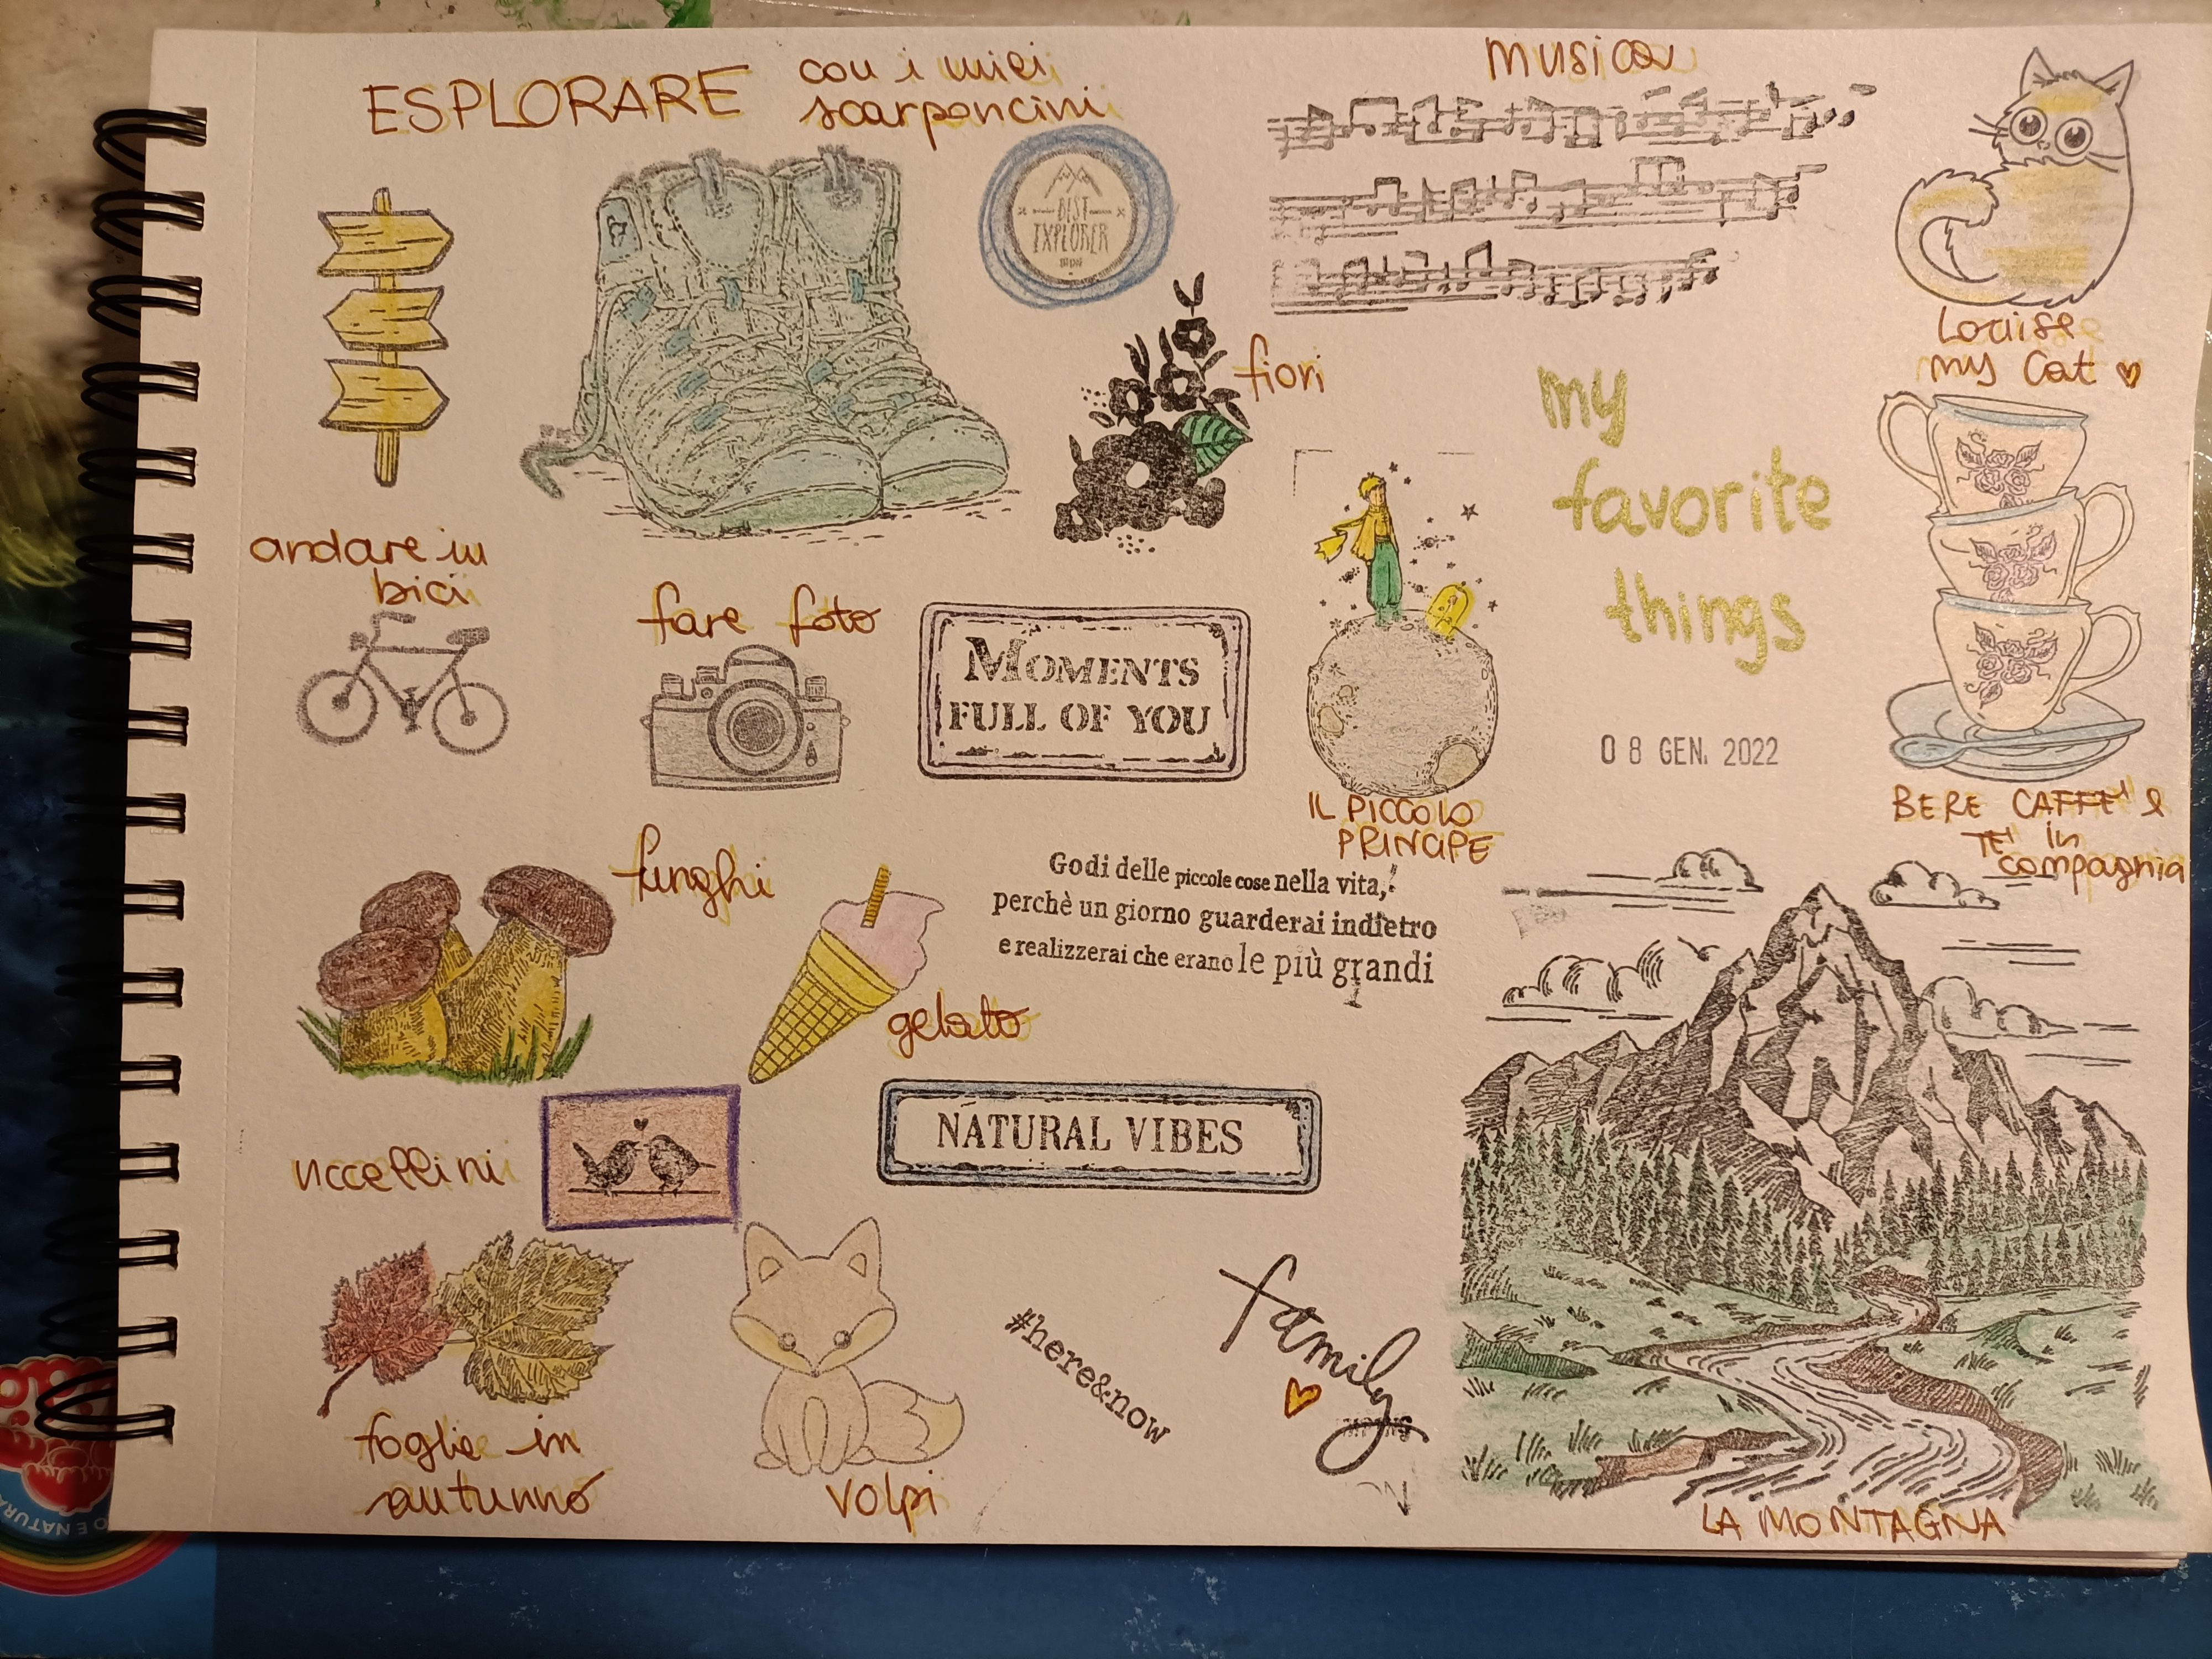 ESPLORARE
con i miei
scarponcini
BEST
EXPLORER
musica
Louise
my cat
fiori
my
favorite
things
08 GEN. 2022
andare in
bici
fare foto
MOMENTS
FULL OF YOU
IL PICCOLO
PRINCIPE
BERE CAFFE' &
TE' in
compagnia
funghi
gelato
Godi delle piccole cose nella vita,
perchè un giorno guarderai indietro
e realizzerai che erano le più grandi
uccellini
NATURAL VIBES
foglie in
autunno
volpi
#here&now
family
LA MONTAGNA